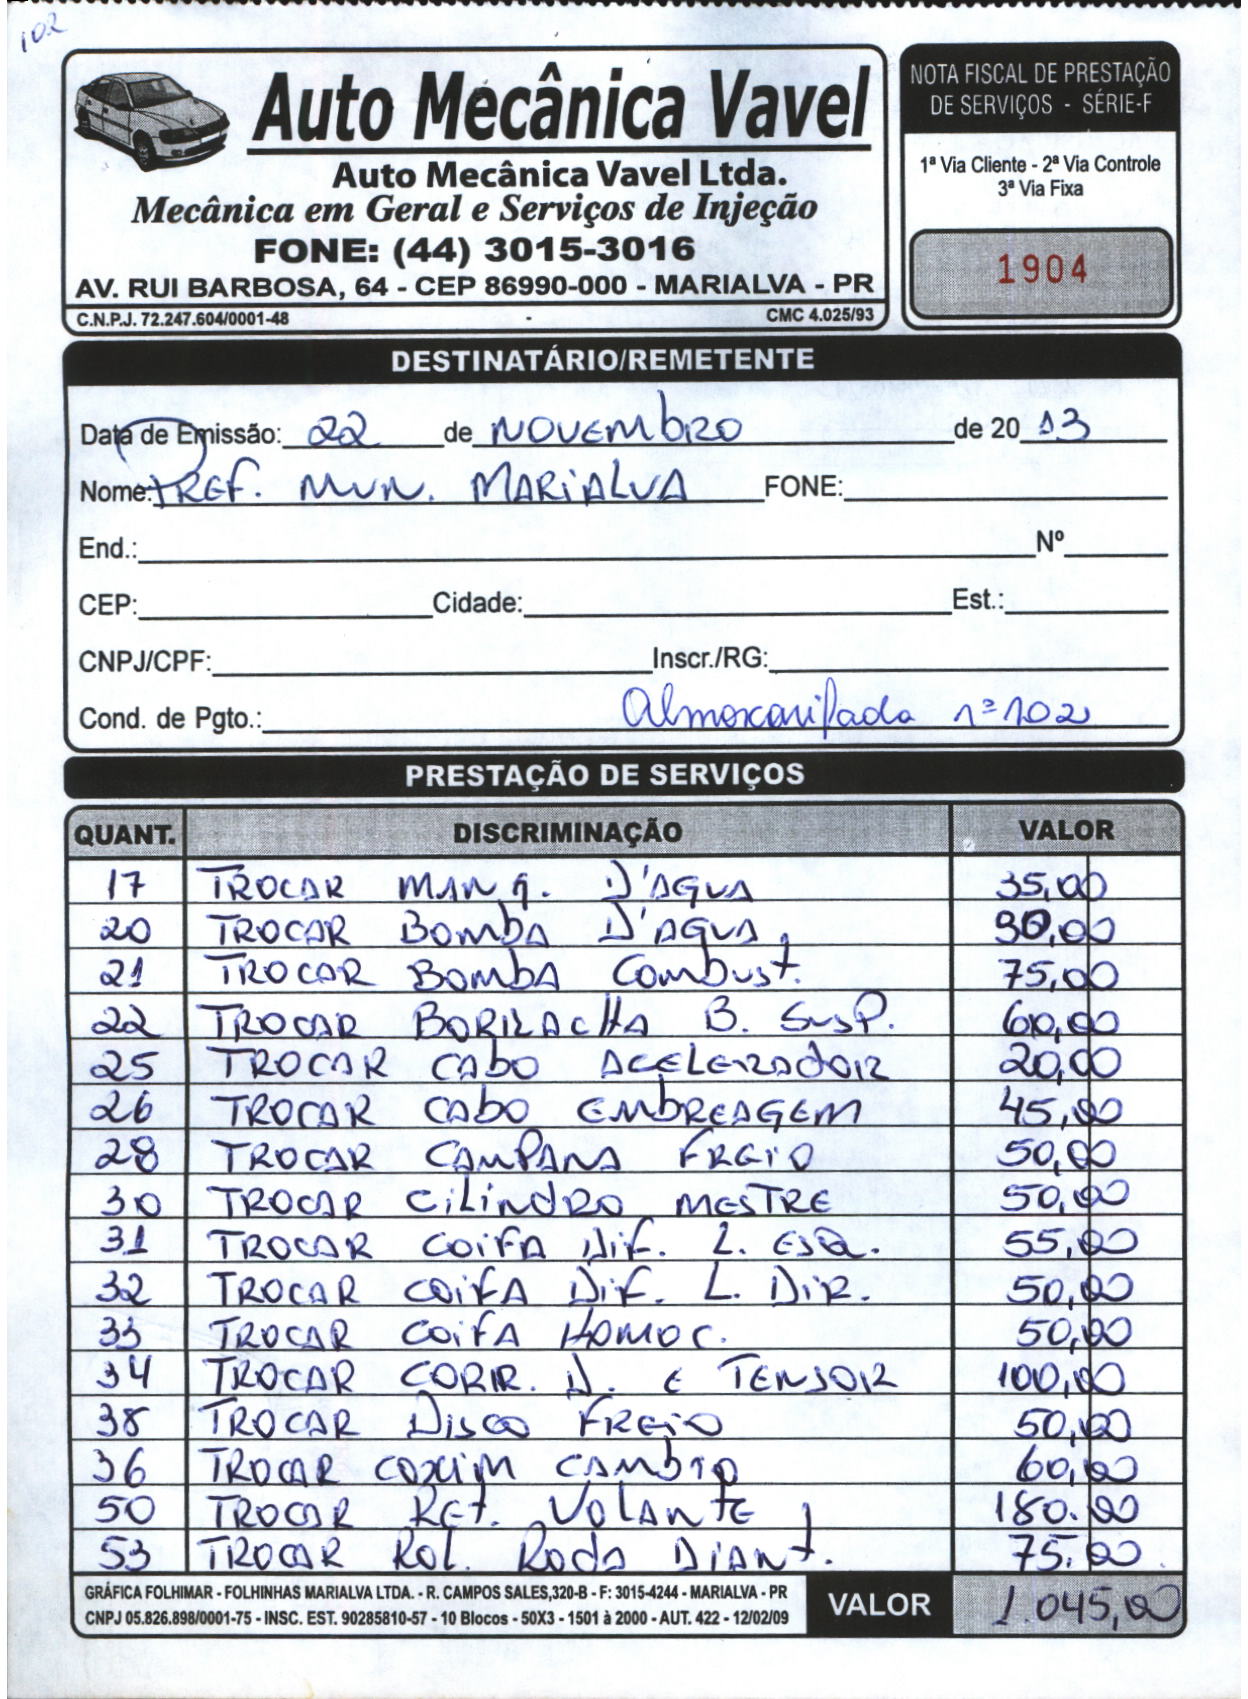 102
Auto Mecânica Vavel
Auto Mecânica Vavel Ltda.
Mecânica em Geral e Serviços de Injeção
FONE: (44) 3015-3016
AV. RUI BARBOSA, 64 - CEP 86990-000 - MARIALVA - PR
C.N.P.J. 72.247.604/0001-48 - CMC 4.025/93
NOTA FISCAL DE PRESTAÇÃO
DE SERVIÇOS - SÉRIE-F
1ª Via Cliente - 2ª Via Controle
3ª Via Fixa
1904
DESTINATÁRIO/REMETENTE
Data de Emissão: 22 de NOVEMBRO de 2013
Nome: PREF. MUN. MARIALVA FONE:
End.: Nº
CEP: Cidade: Est.:
CNPJ/CPF: Inscr./RG:
Cond. de Pgto.: Almoxarifado nº 102
PRESTAÇÃO DE SERVIÇOS
QUANT. DISCRIMINAÇÃO VALOR
17 TROCAR MANG. D'AGUA 35,00
20 TROCAR BOMBA D'AGUA 90,00
21 TROCAR BOMBA COMBUST. 75,00
22 TROCAR BORRACHA B. SUSP. 60,00
25 TROCAR CABO ACELERADOR 20,00
26 TROCAR CABO EMBREAGEM 45,00
28 TROCAR CAMPANA FREIO 50,00
30 TROCAR CILINDRO MESTRE 50,00
31 TROCAR COIFA DIF. L. ESQ. 55,00
32 TROCAR COIFA DIF. L. DIR. 50,00
33 TROCAR COIFA HOMOC. 50,00
34 TROCAR CORR. D. E TENSOR 100,00
38 TROCAR DISCO FREIO 50,00
36 TROCAR COXIM CAMBIO 60,00
50 TROCAR RET. VOLANTE 180.00
53 TROCAR ROL. RODA DIANT. 75.00
GRÁFICA FOLHIMAR - FOLHINHAS MARIALVA LTDA. - R. CAMPOS SALES,320-B - F: 3015-4244 - MARIALVA - PR
CNPJ 05.826.898/0001-75 - INSC. EST. 90285810-57 - 10 Blocos - 50X3 - 1501 à 2000 - AUT. 422 - 12/02/09
VALOR 1.045,00